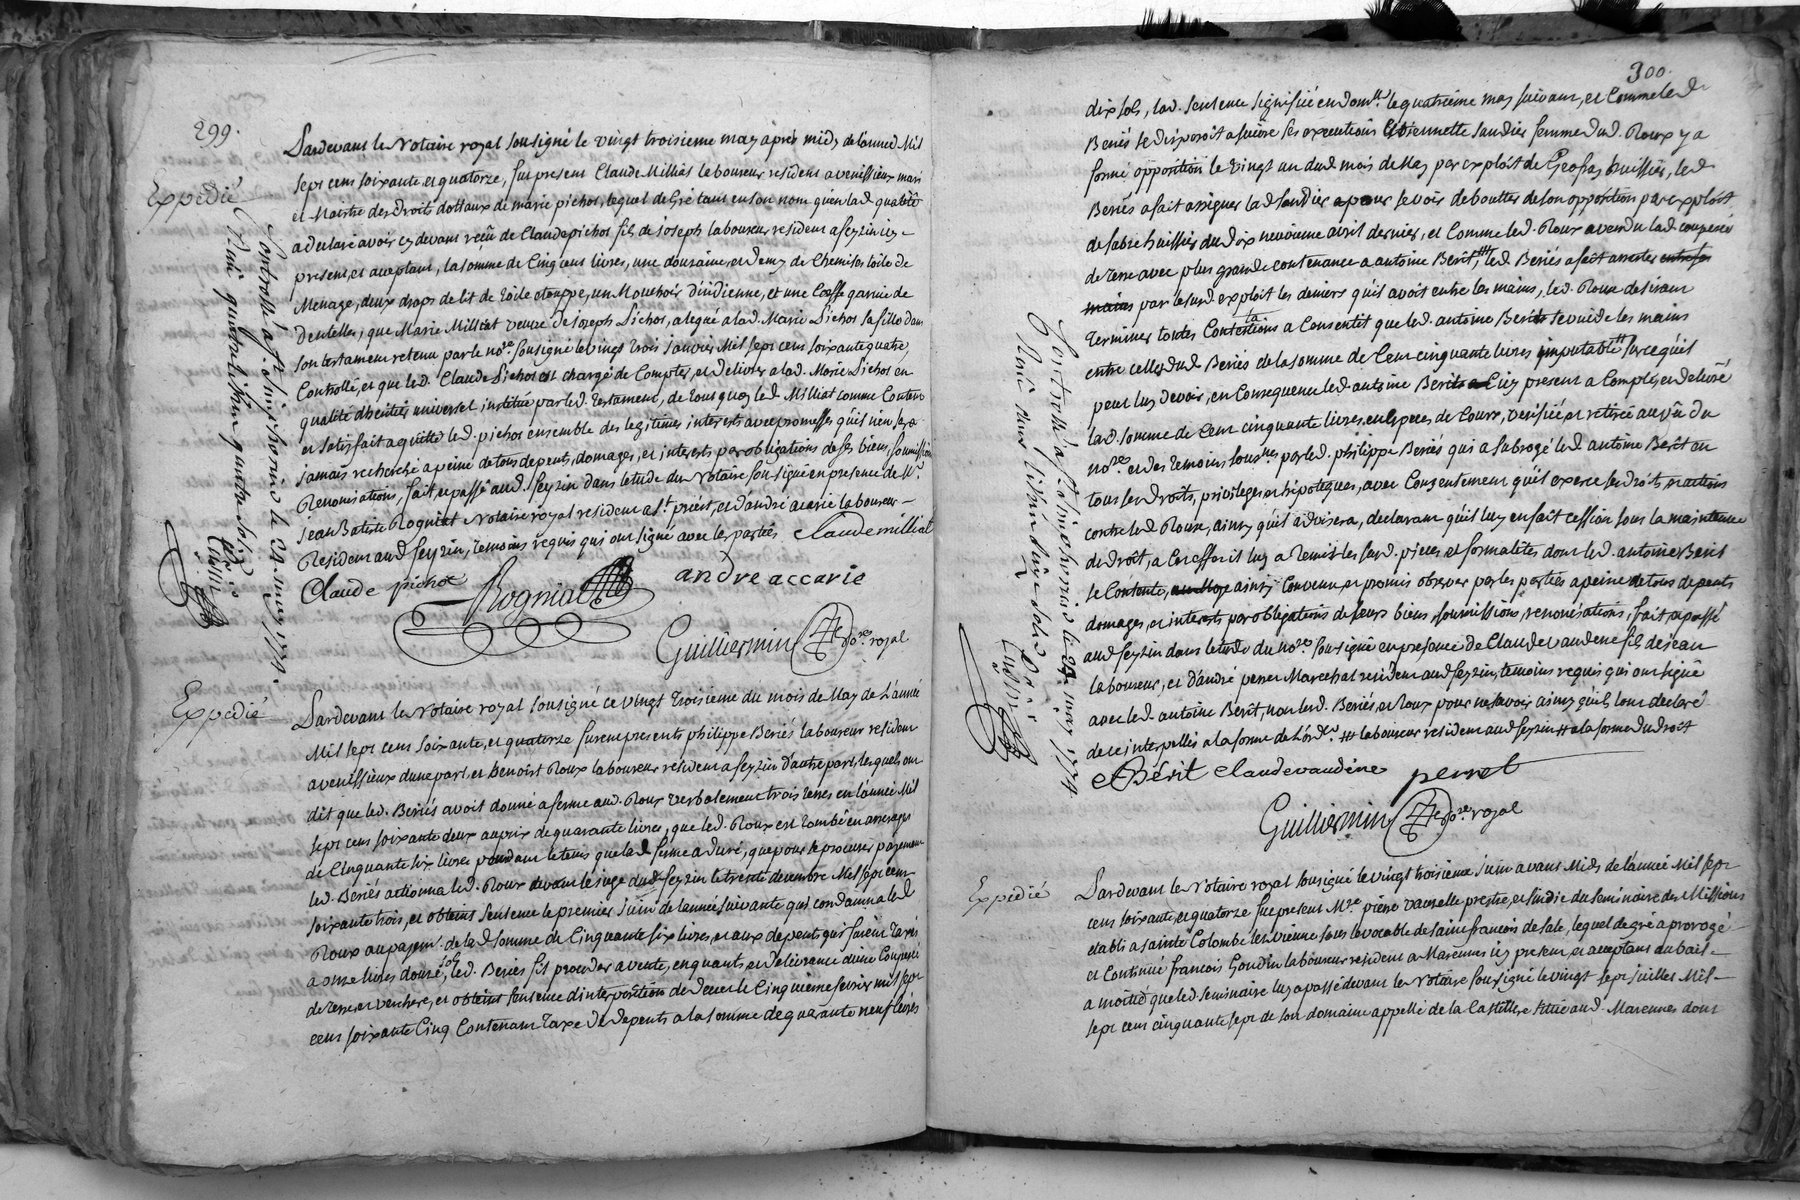 299.
Expedié
Pardevant le Notaire royal sousigné le vingt troisieme may après midy de l'année Mil
sept cens soixante, et quatorze, fut present Claude Milliat laboureur resident a venissieux mari
et Maistre des droits dottaux de marie pichot, lequel de Gré tant en son nom qu'en lad qualité
a declaré avoir cy devant reçû de Claude pichot fils de joseph laboureur resident a feyzin icy
present, et aceptant, la somme de Cinq cens livres, une douzaine, et demy de Chemises toile de
Menage, deux draps de lit de toile etouppe, un Mouchoir d'indienne, et une Coeffe garnie de
dentelles, que Marie Milliat veuve de Joseph Pichot, a legué a lad. Marie Pichot sa fille dans
son testament retenu par le no.re sousigné le vingt trois janvier Mil sept cens soixante quatre,
Controllé, et que led. Claude Pichot est chargé de Compter, et delivrer a lad. Marie Pichot en
qualité d'heritier universel institué par led. testament, de tous quoy led. Milliat comme Content
et satisfait a quitté led. pichot ensemble des legitimes interests avec promesses qu'il n'en sera
jamais recherché a peine de tous depents, domages, et interests par obligations de ses biens, soumissions
Renonciations, fait, et passé aud. feyzin dans letude du Notaire sousigné en presence de M.r
jean Batiste Rogniat Notaire royal resident a S.t priest, et d'andré acarie laboureur
Resident aud feyzin, temoins requis qui ont signé avec les parties Claude milliat
Claude pichot Rogniat andre accarie
Guilliermin no.re royal
Controllé a S.t simphorien le 24 may 1774.
Reçu quatre livres quatre sols
Expedié
Pardevant le Notaire royal sousigné ce vingt troisieme du mois de May de l'année
Mil sept cens soixante, et quatorze furent presents philippe Beriés laboureur resident
a venissieux d'une part, et Benoist Roux laboureur resident a feyzin d'autre part, lesquels ont
dit que led. Beriés avoit donné a ferme aud. Roux verbalement trois terres en l'année Mil
sept cens soixante deux au prix de quarante livres, que led. Roux est tombé en arrerages
de Cinquante six livres pendant le tems que lad ferme a duré, que pour se procurer payement
led. Beriés actionna led. Roux devant le juge dud feyzin le trente decembre Mil sept cens
soixante trois, et obtint sentence le premier juin de lannée suivante qui condamna led
Roux au payem.t de lad somme de Cinquante six livres, et aux depents qui furent taxés
a onze livres douze sols, led. Beriés fit proceder a vente, enquants, et delivrance d'une Coupereé
de terre, et verchere, et obtint sentence d'interposition de decret le Cinquieme fevrier mil sept
cens soixante Cinq Contenant taxe de depents a la somme de quarante neuf livres
300.
dix sols, lad. sentence signifiée en dom.lle le quatrieme may suivant, et Comme led
Beriés se disposoit a suivre ses executions Etiennette Sandier femme dud. Roux y a
formé opposition le vingt un dud mois de May par exploit de Geofray huissier, led
Beriés a fait assigner lad Sandier pour se voir debouttér de son opposition par exploit
de fabre huissier du dix neuvieme avril dernier, et Comme led. Roux a vendu lad couperée
de terre avec plus grande contenance a antoine Berit, led. Beriés a fait arreter entre ses
mains par le sud. exploit les deniers qu'il avoit entre les mains, led. Roux desirant
terminer toutes Contestations a Consentit que led. antoine Berit se vuide les mains
entre celles dud Beriés de la somme de Cent cinquante livres imputable sur ce qu'il
peut luy devoir, en Consequence led. antoine Berit icy present a Compté, et delivré
lad. somme de Cent cinquante livres, en especes de Cours, verifiée, et retirée au vû du
no.re et des temoins sous.nes par led. philippe Beriés qui a subrogé led. antoine Berit en
tous ses droits, privileges, et hipoteques, avec Consentement qu'il exerce ses droits, et actions
contre led. Roux, ainsy qu'il advisera, declarant qu'il luy en fait cession sous la maintenue
de droit, a Cet effet il luy a remis les sud. pieces, et formalités dont led. antoine Berit
se Contente, ainsy Convenu, et promis observer par les parties a peine de tous depents
domages, et interests par obligations de leurs biens, soumissions, renonciations, fait, et passé
aud feyzin dans letude du no.re sousigné en presence de Claude vaudene fils de jean
laboureur, et d'andré perret Marechal resident aud feyzin, temoins requis qui ont signé
avec led. antoine Berit, non led. Beriés, et Roux pour ne savoir ainsy qu'ils l'ont declaré
de ce interpellés a la forme de l'ord.ce laboureur resident aud feyzin a la forme du droit
a Bérit claude vaudene perret
Guilliermin no.re royal
Controllé a S.t simphorien le 24 may 1774.
Reçu deux livres deux sols
Expedié
Pardevant le Notaire royal sousigné le vingt troisieme juin avant Midy de l'année Mil sept
cens soixante, et quatorze fut present M.re piere vauzelle prestre, et sindic du Seminaire des Missions
etabli a sainte Colombe les vienne sous le vocable de saint francois de sale, lequel de gré a prorogé
et Continué francois Goudin laboureur resident a Marennes icy present, et aceptant du bail
a moitié que led seminaire luy a passé devant le Notaire sousigné le vingt sept juillet Mil
sept cens cinquante sept de son domaine appellé de la Castillere situé aud. Marennes dont